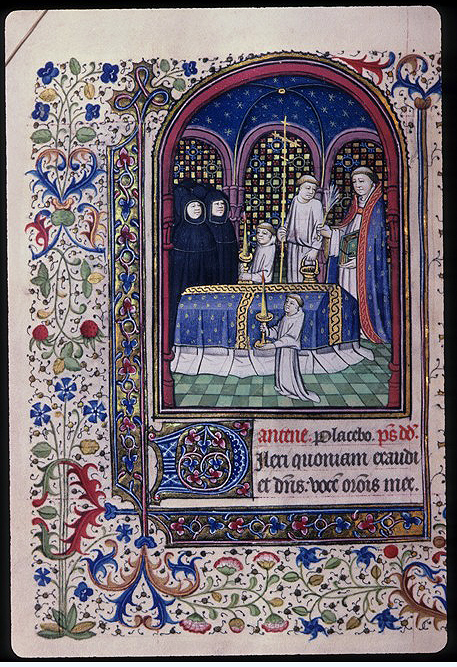 antene. Placebo. p̄s dd̄.
DIlexi quoniam exaudi
et dn̄s. vocē orōis mee.